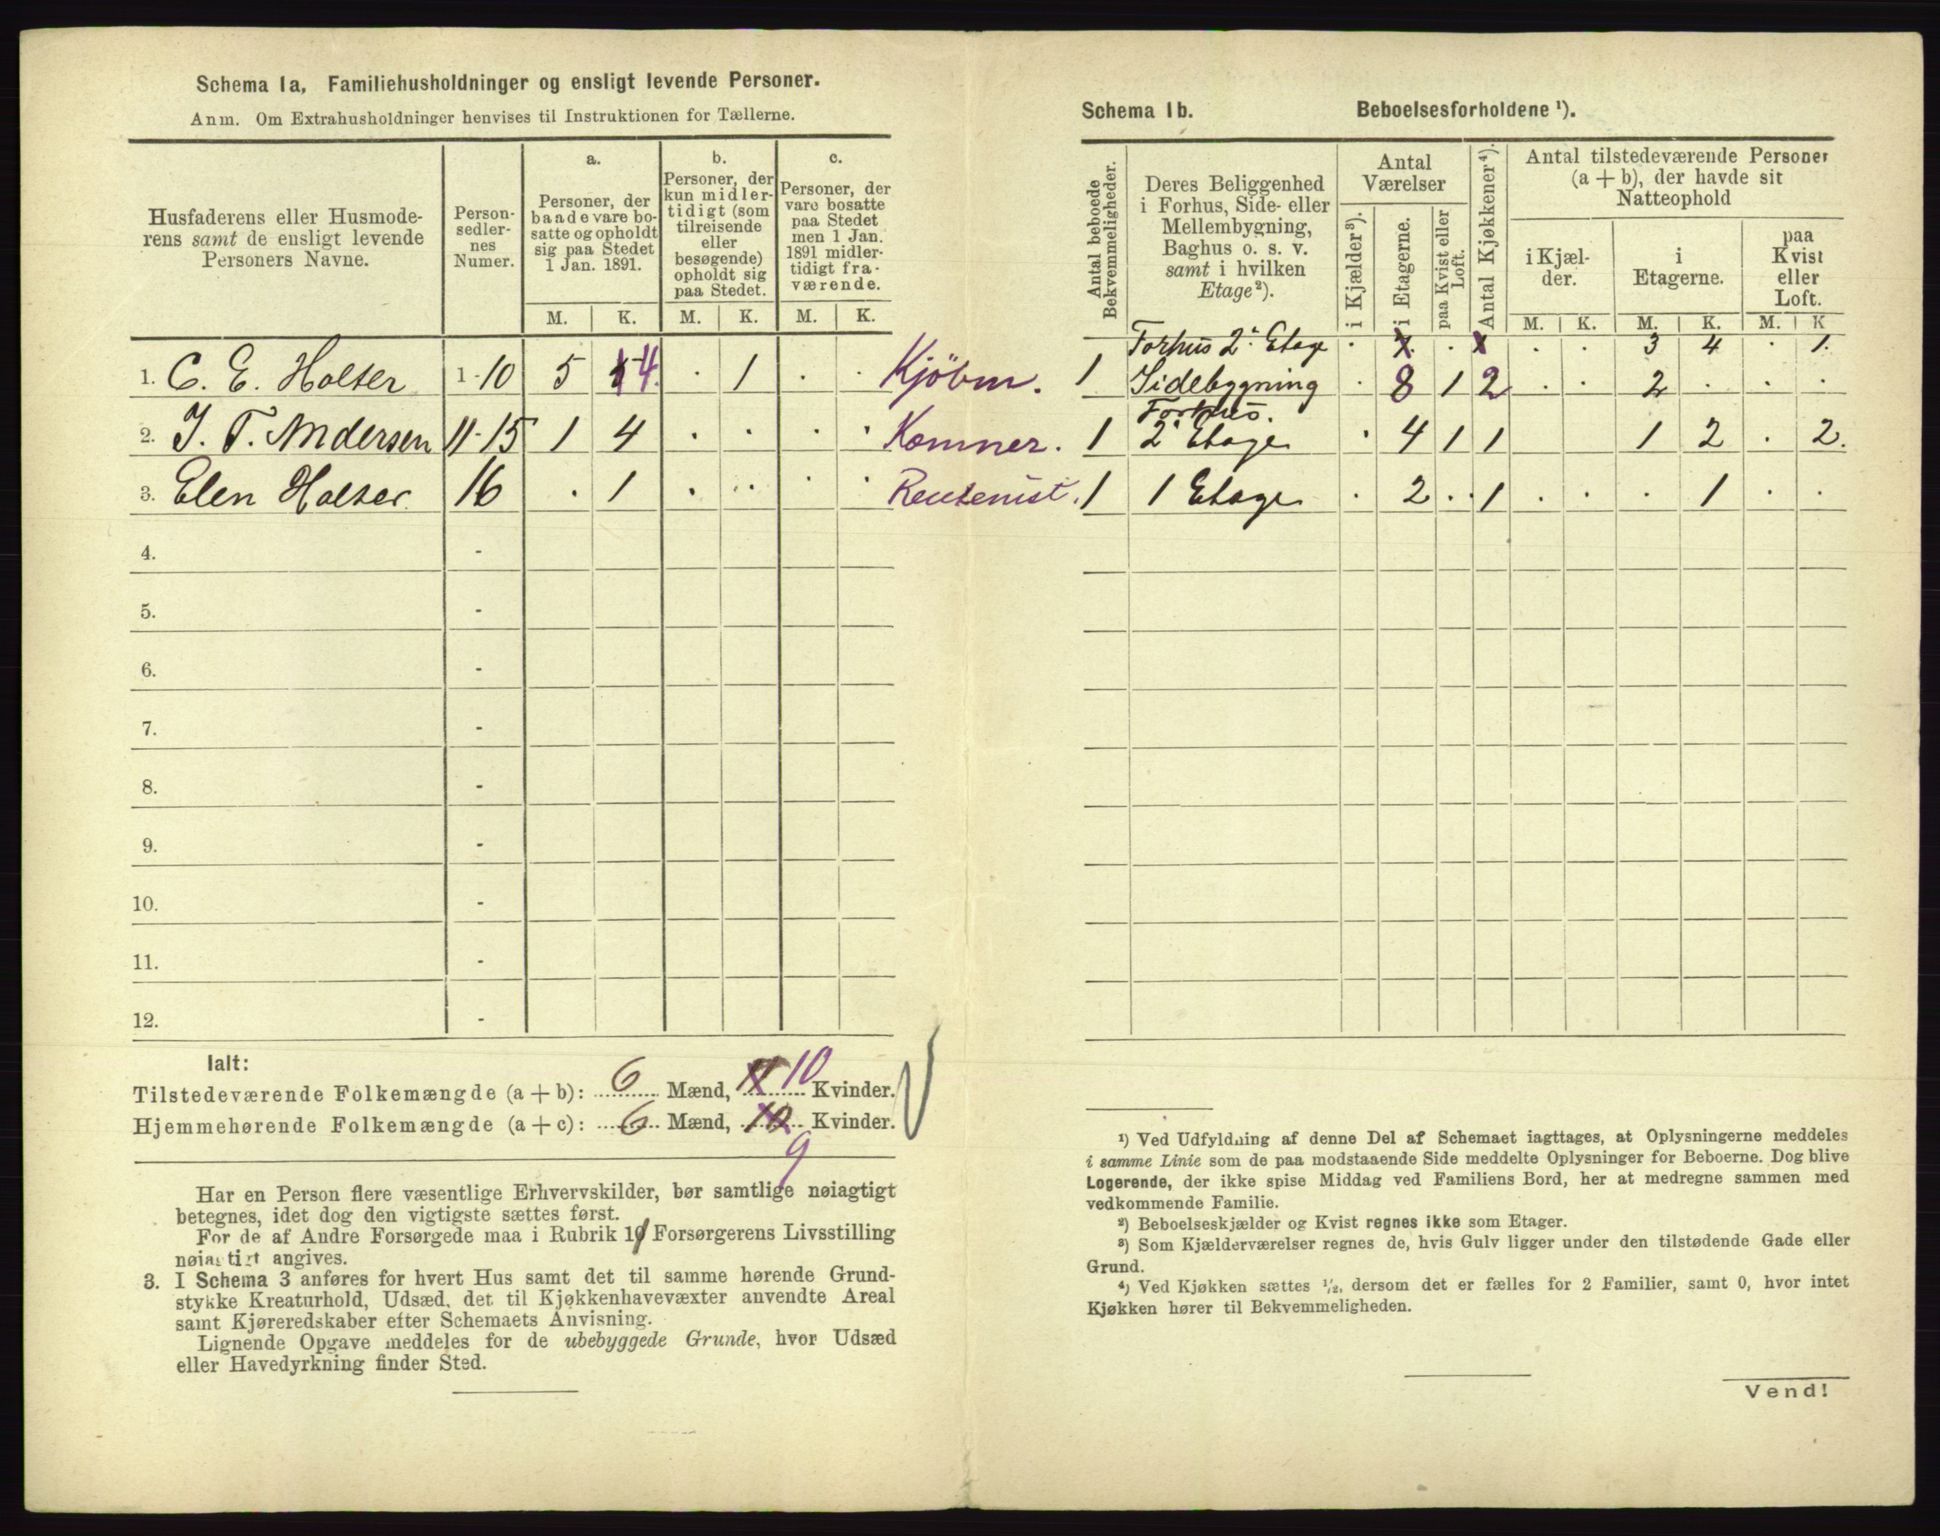 Schema 1a, Familiehusholdninger og ensligt levende Personer.
Anm. Om Extrahusholdninger henvises til Instruktionen for Tællerne.
Husfaderens eller Husmode-
rens samt de ensligt levende
Personers Navne.
Person-
sedler-
nes
Numer.
a.
Personer, der
baade vare bo-
satte og opholdt
sig paa Stedet
1 Jan. 1891.
b.
Personer, der
kun midler-
tidigt (som
tilreisende
eller
besøgende)
opholdt sig
paa Stedet.
c.
Personer, der
vare bosatte
paa Stedet
men 1 Jan.
1891 midler-
tidigt fra-
værende.
M. K. M. K. M. K.
1. C. E. Holter 1-10 5 4 · 1 · · Kjöbm.
2. J. T. Andersen 11-15 1 4 · · · · Kæmner.
3. Elen Holter 16 · 1 · · · · Rentenist.
4. -
5. -
6. -
7. -
8. -
9. -
10. -
11. -
12. -
Ialt:
Tilstedeværende Folkemængde (a + b): 6 Mænd, 11 10 Kvinder.
Hjemmehørende Folkemængde (a + c): 6 Mænd, 10 Kvinder.
9
Har en Person flere væsentlige Erhvervskilder, bør samtlige nøiagtigt
betegnes, idet dog den vigtigste sættes først.
For de af Andre Forsørgede maa i Rubrik 10 Forsørgerens Livsstilling
nøiagtigt angives.
3. I Schema 3 anføres for hvert Hus samt det til samme hørende Grund-
stykke Kreaturhold, Udsæd, det til Kjøkkenhavevæxter anvendte Areal
samt Kjøreredskaber efter Schemaets Anvisning.
Lignende Opgave meddeles for de ubebyggede Grunde, hvor Udsæd
eller Havedyrkning finder Sted.
Schema 1b. Beboelsesforholdene ¹).
Antal beboede
Bekvemmeligheder.
Deres Beliggenhed
i Forhus, Side- eller
Mellembygning,
Baghus o. s. v.
samt i hvilken
Etage²).
Antal
Værelser
i Kjælder³).
i Etagerne.
paa Kvist eller
Loft.
Antal Kjøkkener⁴).
Antal tilstedeværende Personer
(a + b), der havde sit
Natteophold
i Kjæl-
der.
i
Etagerne.
paa
Kvist
eller
Loft.
M. K. M. K. M. K
Forhus 2. Etage · x · x · · 3 4 · 1.
1 Sidebygning · 8 1 2 · · 2 · · ·
Forhus.
1 2 Etage · 4 1 1 1 2 · 2.
1 1 Etage · 2 · 1 · · · 1 · ·
¹) Ved Udfyldning af denne Del af Schemaet iagttages, at Oplysningerne meddeles
i samme Linie som de paa modstaaende Side meddelte Oplysninger for Beboerne. Dog blive
Logerende, der ikke spise Middag ved Familiens Bord, her at medregne sammen med
vedkommende Familie.
²) Beboelseskjælder og Kvist regnes ikke som Etager.
³) Som Kjælderværelser regnes de, hvis Gulv ligger under den tilstødende Gade eller
Grund.
⁴) Ved Kjøkken sættes ¹/₂, dersom det er fælles for 2 Familier, samt 0, hvor intet
Kjøkken hører til Bekvemmeligheden.
Vend!